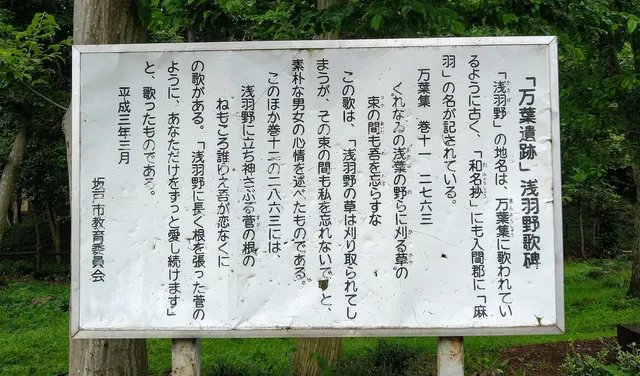 「万葉遺跡」浅羽野歌碑
「浅羽野」の地名は、万葉集に歌われてい
るように古く、「和名抄」にも入間郡に「麻
羽」の名が記されている。
万葉集　巻十一　二七六三
くれなゐの浅葉の野らに刈る草の
束の間も吾を忘らすな
この歌は、「浅羽野の草は刈り取られてし
まうが、その束の間も私を忘れないで」と、
素朴な男女の心情を述べたものである。
このほか巻十二の二八六三には、
浅羽野に立ち神さぶる菅の根の
ねもころ誰ゆゑ吾が恋なくに
の歌がある。「浅羽野に長く根を張った菅の
ように、あなただけをずっと愛し続けます」
と、歌ったものである。
平成三年三月
坂戸市教育委員会